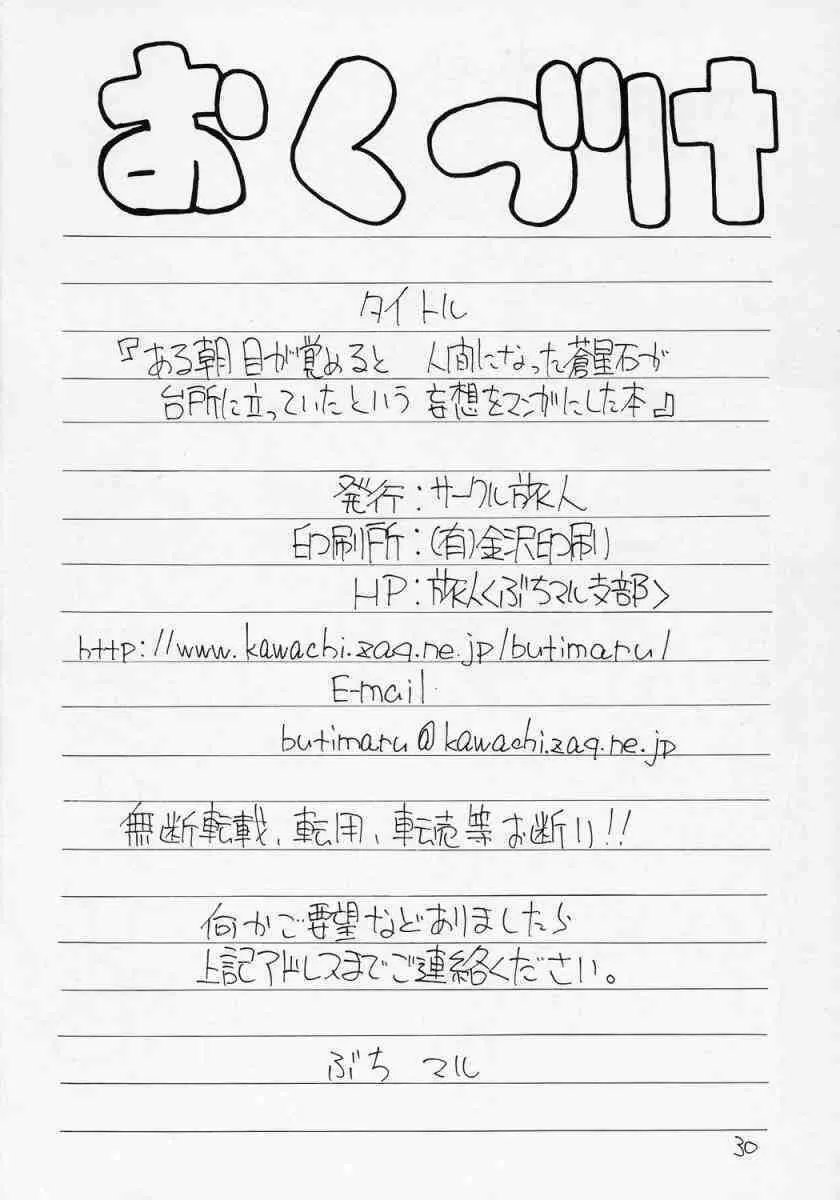 おくづけ
タイトル
『ある朝目が覚めると 人間になった蒼星石が
台所に立っていたという 妄想をマンガにした本』
発行:サークル旅人
印刷所:(有)金沢印刷
HP:旅人くぶちマル支部>
http://www.kawachi.zaq.ne.jp/butimaru/
E-mail
butimaru@kawachi.zaq.ne.jp
無断転載、転用、転売等お断り!!
何かご要望などありましたら
上記アドレスまでご連絡ください。
ぶち マル
30